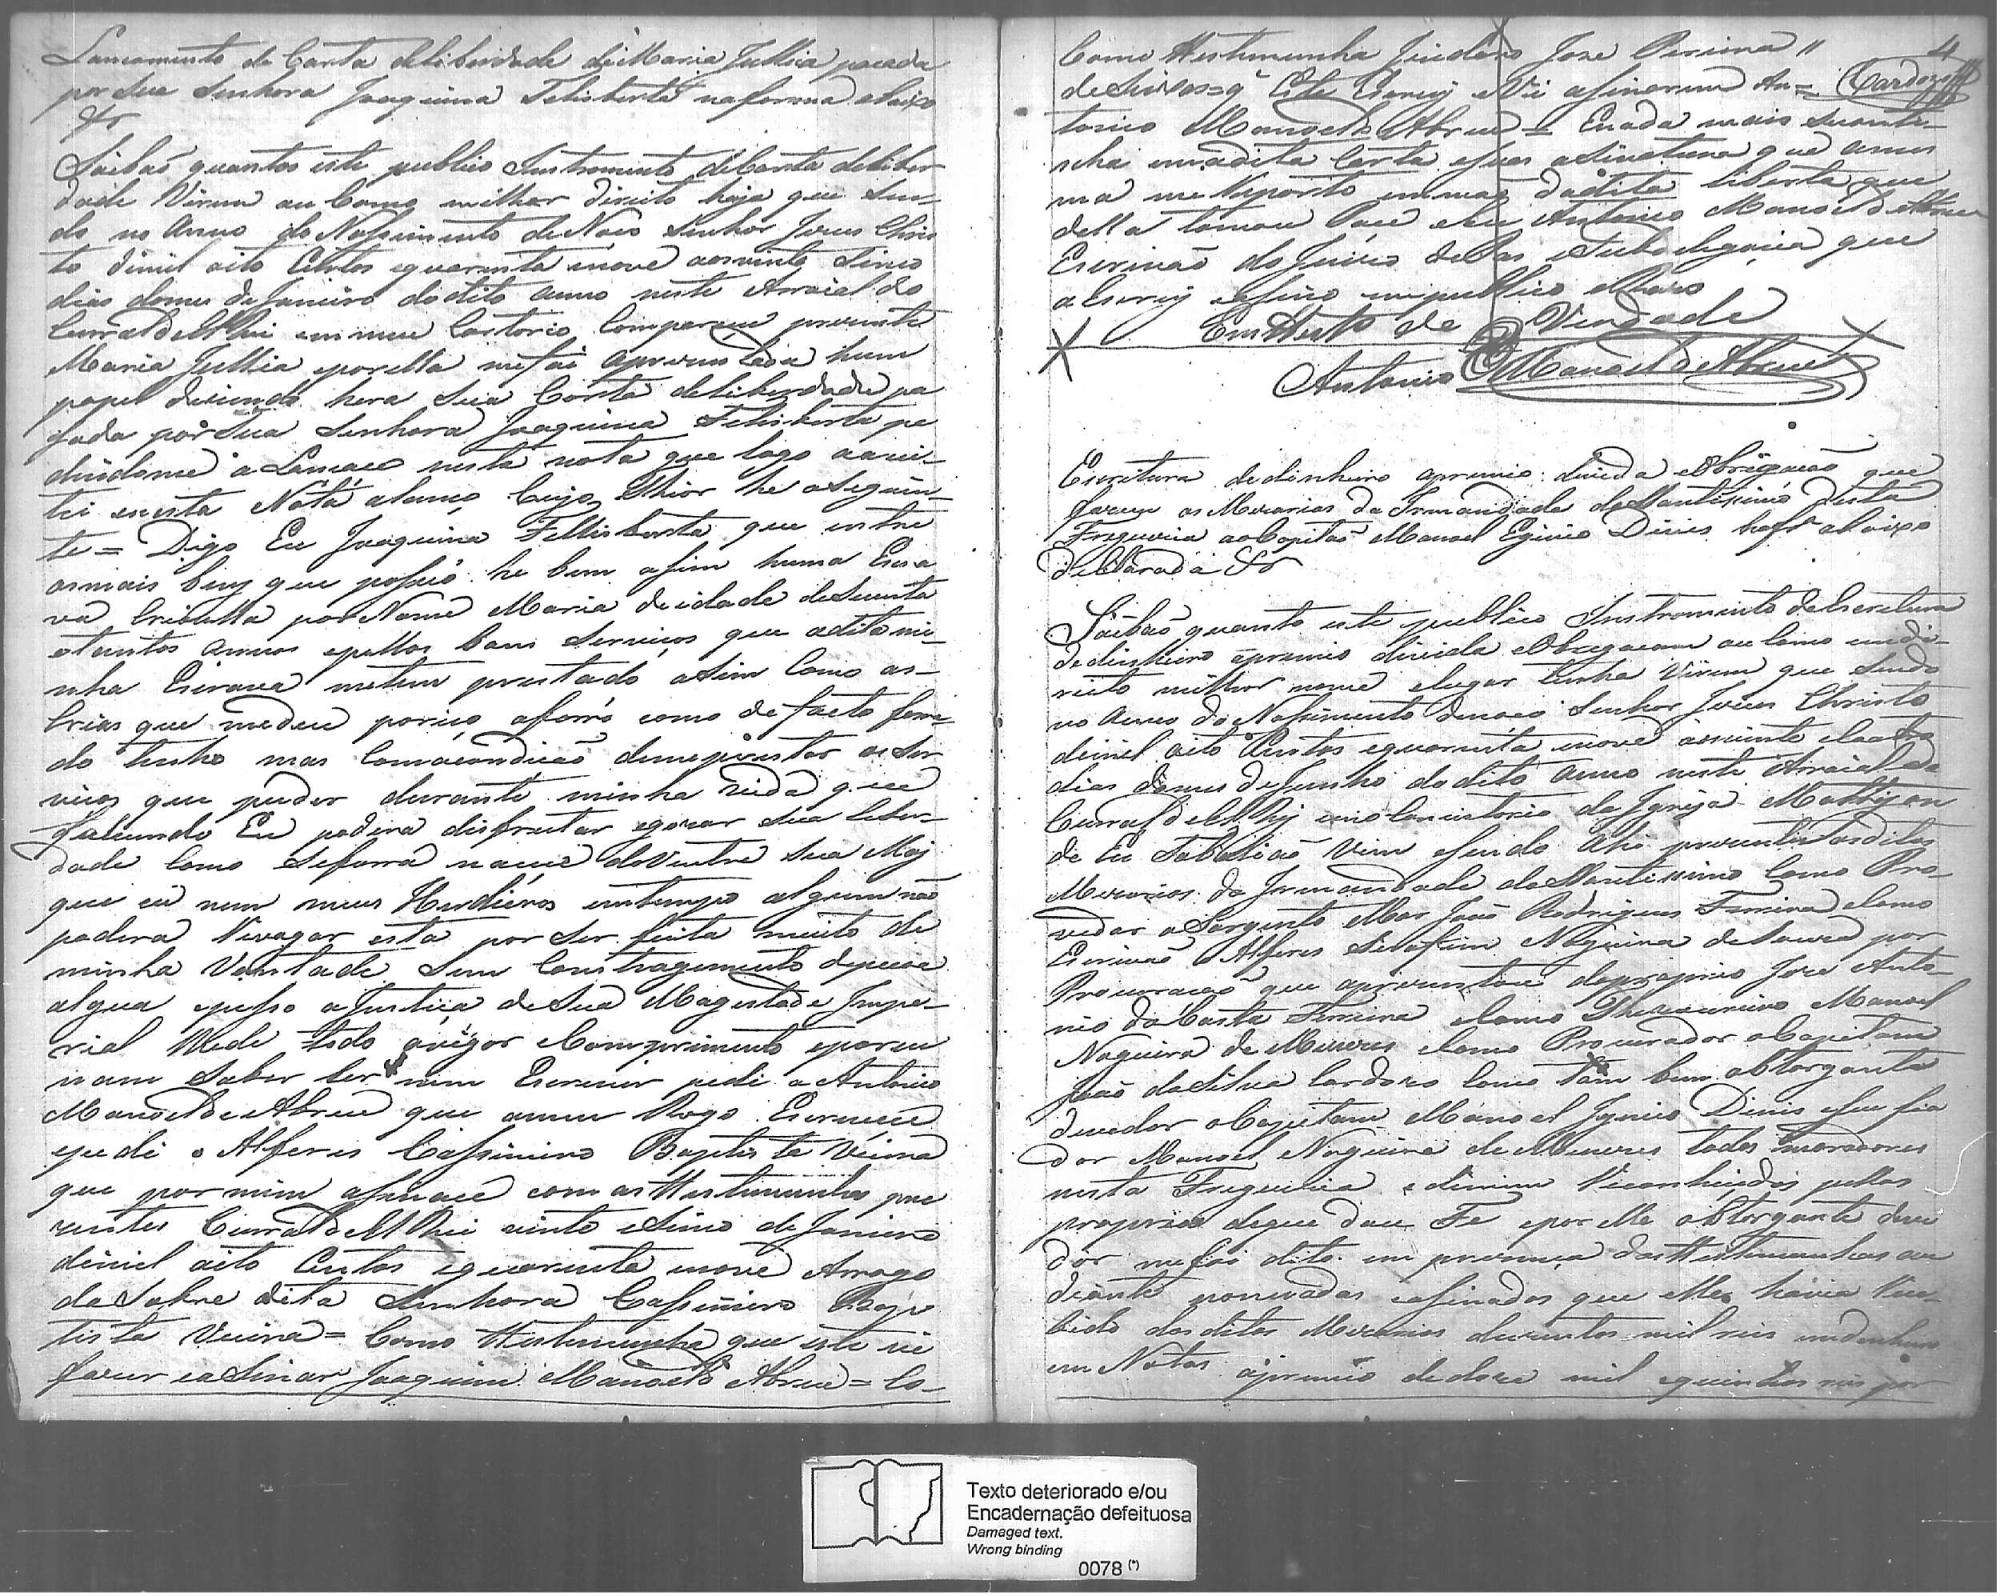 Lancamento da Carta deliberdade de Maria Jullia pacada
por Sua Senhora Joaquina Felisberta naforma abaixo
&r
Saibaõ quantos este publico Instromento de Carta deliber
dade Virem ou Como milhor direito haja que Sen-
do no Anno do Nassimento de Noso Senhor Jezus Chris
to demil oito Centos equarenta enove aosvinte Sinco
dias domes de Janeiro dodito anno neste Arraial do
Curral del Rei em meu Cartorio Compareceu prezente
Maria Jullia eporella mefoi aprezentada hum
papel dizendo hera Sua Carta deliberdade pa
sada por Sua Senhora Joaquina Felisberta pe
dindome a Lancace nesta nota que logo acei-
tei enesta Nota alanço Cujo Thior he oSeguin-
te = Digo Eu Joaquina Fellisberta que entre
osmais beins que posuo he bem asim huma Escra
va Crioulla por Nome Maria de idade deSecenta
etantos annos epellos bons Servicos que adita mi-
nha Escrava metem prestado asim Como as-
Crias que medeu porico aforro como de facto forra
do tenho mas Comacondicaõ demeprestar os Ser
vicos que puder durante minha vida que
falecendo Eu padera disfrutar egozar Sua liber-
dade Como Seforra nacece do Ventre Sua Maj
que eu nem meus Herdeiros emtempo algum não
padera Revogar esta por Ser feita muito de
minha Vontade Sem Constragimento depecoa
algua epesso a Justiça de Sua Magestade Impe-
rial Rede todo ovigor eComprimento eporeu
nam Saber ler nem Escrever pedi a Antonio
Manoel de Abreu que ameu Rogo Escrevece
epedi o Alferes Cassimiro Baptista Vieira
que por mim asinace com as Testemunhas pre
zentes Curral del Rei vinte eSinco de Janeiro
demil oito Centos equarenta enove Arrogo
da Sobre dita Senhora Cassimiro Bap
tista Vieira = Como Testemunha que este vi
fazer eaSinar Joaquim Manoel de Abreu = Co-
Como Testemunha Jose Pereira //
4
Cardozo
deste Escrevy eVi asinarem An=
tonio Manoel de Abreu = Enada mais Seconti-
nha emadita Carta esuas aSinaturas que ames
ma me Reporto em mao dadita liberta que
della tomou Poce eeu Antonio Manoel de Abreu
Escrivão do Juizo de Paz eSubdelgacia que
aEscrevy easino em publico eRazo
Em Testo de Verdade
Antonio Manoel de Abreu
Escritura dedinheiro apremio divida eObrigacaõ que
fazem os Mezarios da Irmandade do Santissimo desta
Freguezia aoCapitaõ Manoel Eginio Dinis naforma abaixo
declarada &r
Saibaõ quanto este publico Instromento deEscretura
dedinheiro apremio divida eObrigacam ou Como emdi-
reito milhor nome elugar tenha Virem que Sendo
no Anno do Nassimento denoco Senhor Jezus Christo
demil oito Centos equarenta enove aosvinte
dias domes de Junho dodito anno neste Arraial do
Curral del Rej enoConcistorio da Igreja Mattriz on
de Eu Tabaliaõ Vim esendo Ahi prezentes osditos
Mezarios da Irmandade do Santissimo Como Pro-
vedor o Sargento Mor Joaõ Rodrigues Ferreira eComo
Escrivaõ o Alferes Serafim Nogueira de por
Procuracaõ que aprezentou dopropio Joze Anto-
nio da Costa Ferreira eComo Thezoureiro Manoel
Nogueira de Menezes eComo Procurador oCapitam
Joaõ da Silva Cardozo Como Tam bem obtorgante
devedor oCapitam Manoel Iginio Dinis eSeu fia
dor Manoel Nogueira de Menezes todos moradores
nesta Freguezia Reconhecidos pellos
propios deque dou Fe eporelle oObtorgante deve
dor mefoi dito em prezença dasTestemunhas au
diante nomiadas easinadas que elle havia Rece-
bido dosditos Mezarios duzentos mil reis emdinheiro
em Notas apremio de doze mil equinhentos reis por
Texto deteriorado e/ou
Encadernação defeituosa
Damaged text.
Wrong binding
0078 (*)